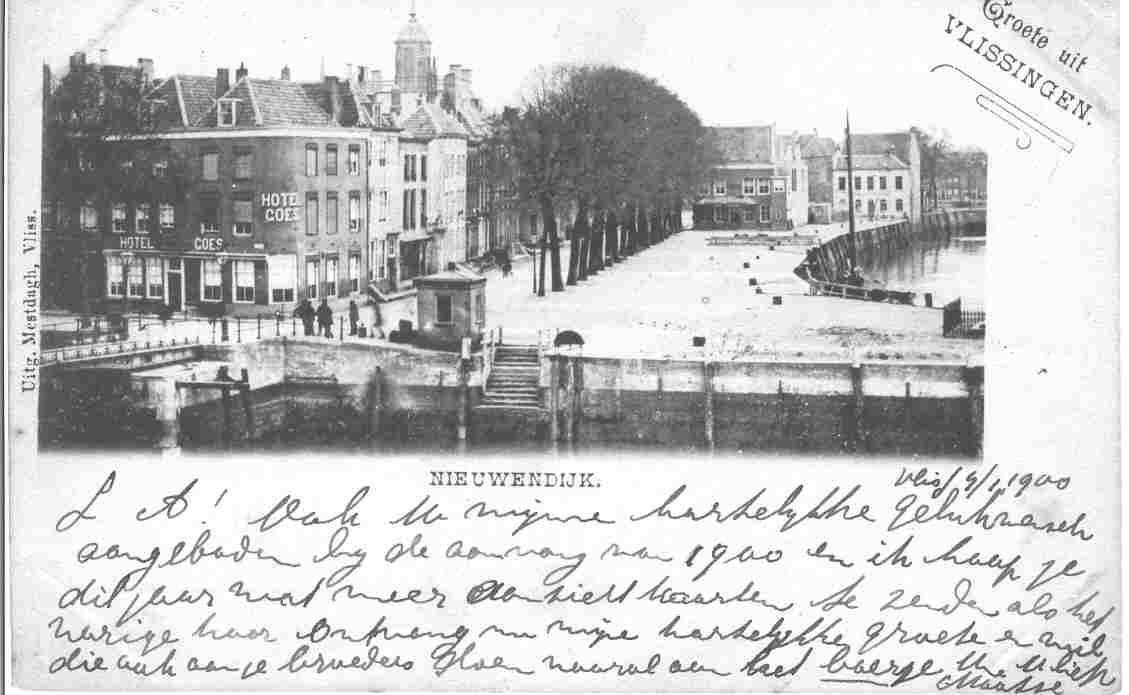 Groete uit
VLISSINGEN.
HOTEL
GOES
HOTEL GOES
Uitg. Mestdagh, Vliss.
NIEUWENDIJK.
Vliss 9/1, 1900
L A! Ook U mijne hartelykke gelukwensch
aangeboden by de aanvang van 1900 en ik hoop je
dit jaar wat meer aanzichtkaarten te zenden als het
vorige hoor Ontvang nu mijne hartelykke groete en wil
die ook aan je broeders doen vooral aan het